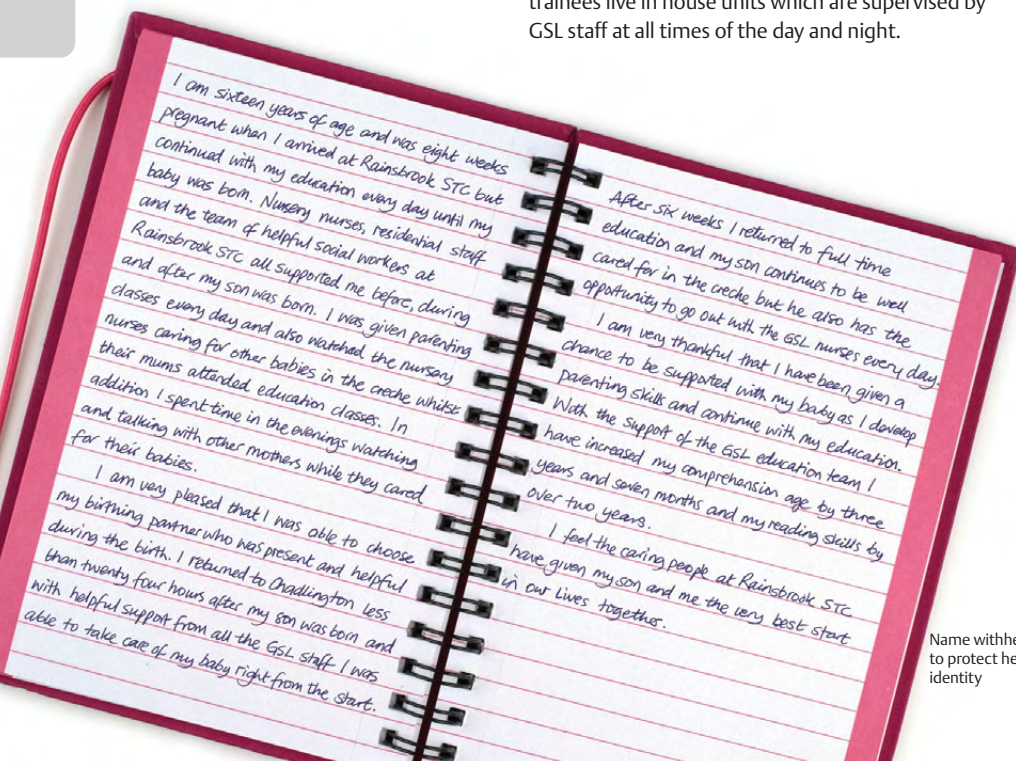 trainees live in house units which are supervised by
GSL staff at all times of the day and night.
I am sixteen years of age and was eight weeks
pregnant when I arrived at Rainsbrook STC but
continued with my education every day until my
baby was born. Nursery nurses, residential staff
and the team of helpful social workers at
Rainsbrook STC all supported me before, during
and after my son was born. I was given parenting
classes every day and also watched the nursery
nurses caring for other babies in the creche whilst
their mums attended education classes. In
addition I spent time in the evenings watching
and talking with other mothers while they cared
for their babies.
I am very pleased that I was able to choose
my birthing partner who was present and helpful
during the birth. I returned to Chadlington less
than twenty four hours after my son was born and
with helpful support from all the GSL staff I was
able to take care of my baby right from the start.
After six weeks I returned to full time
education and my son continues to be well
cared for in the creche but he also has the
opportunity to go out with the GSL nurses every day.
I am very thankful that I have been given a
chance to be supported with my baby as I develop
parenting skills and continue with my education.
With the support of the GSL education team I
have increased my comprehension age by three
years and seven months and my reading skills by
over two years.
I feel the caring people at Rainsbrook STC
have given my son and me the very best start
in our lives together.
Name withhe
to protect he
identity